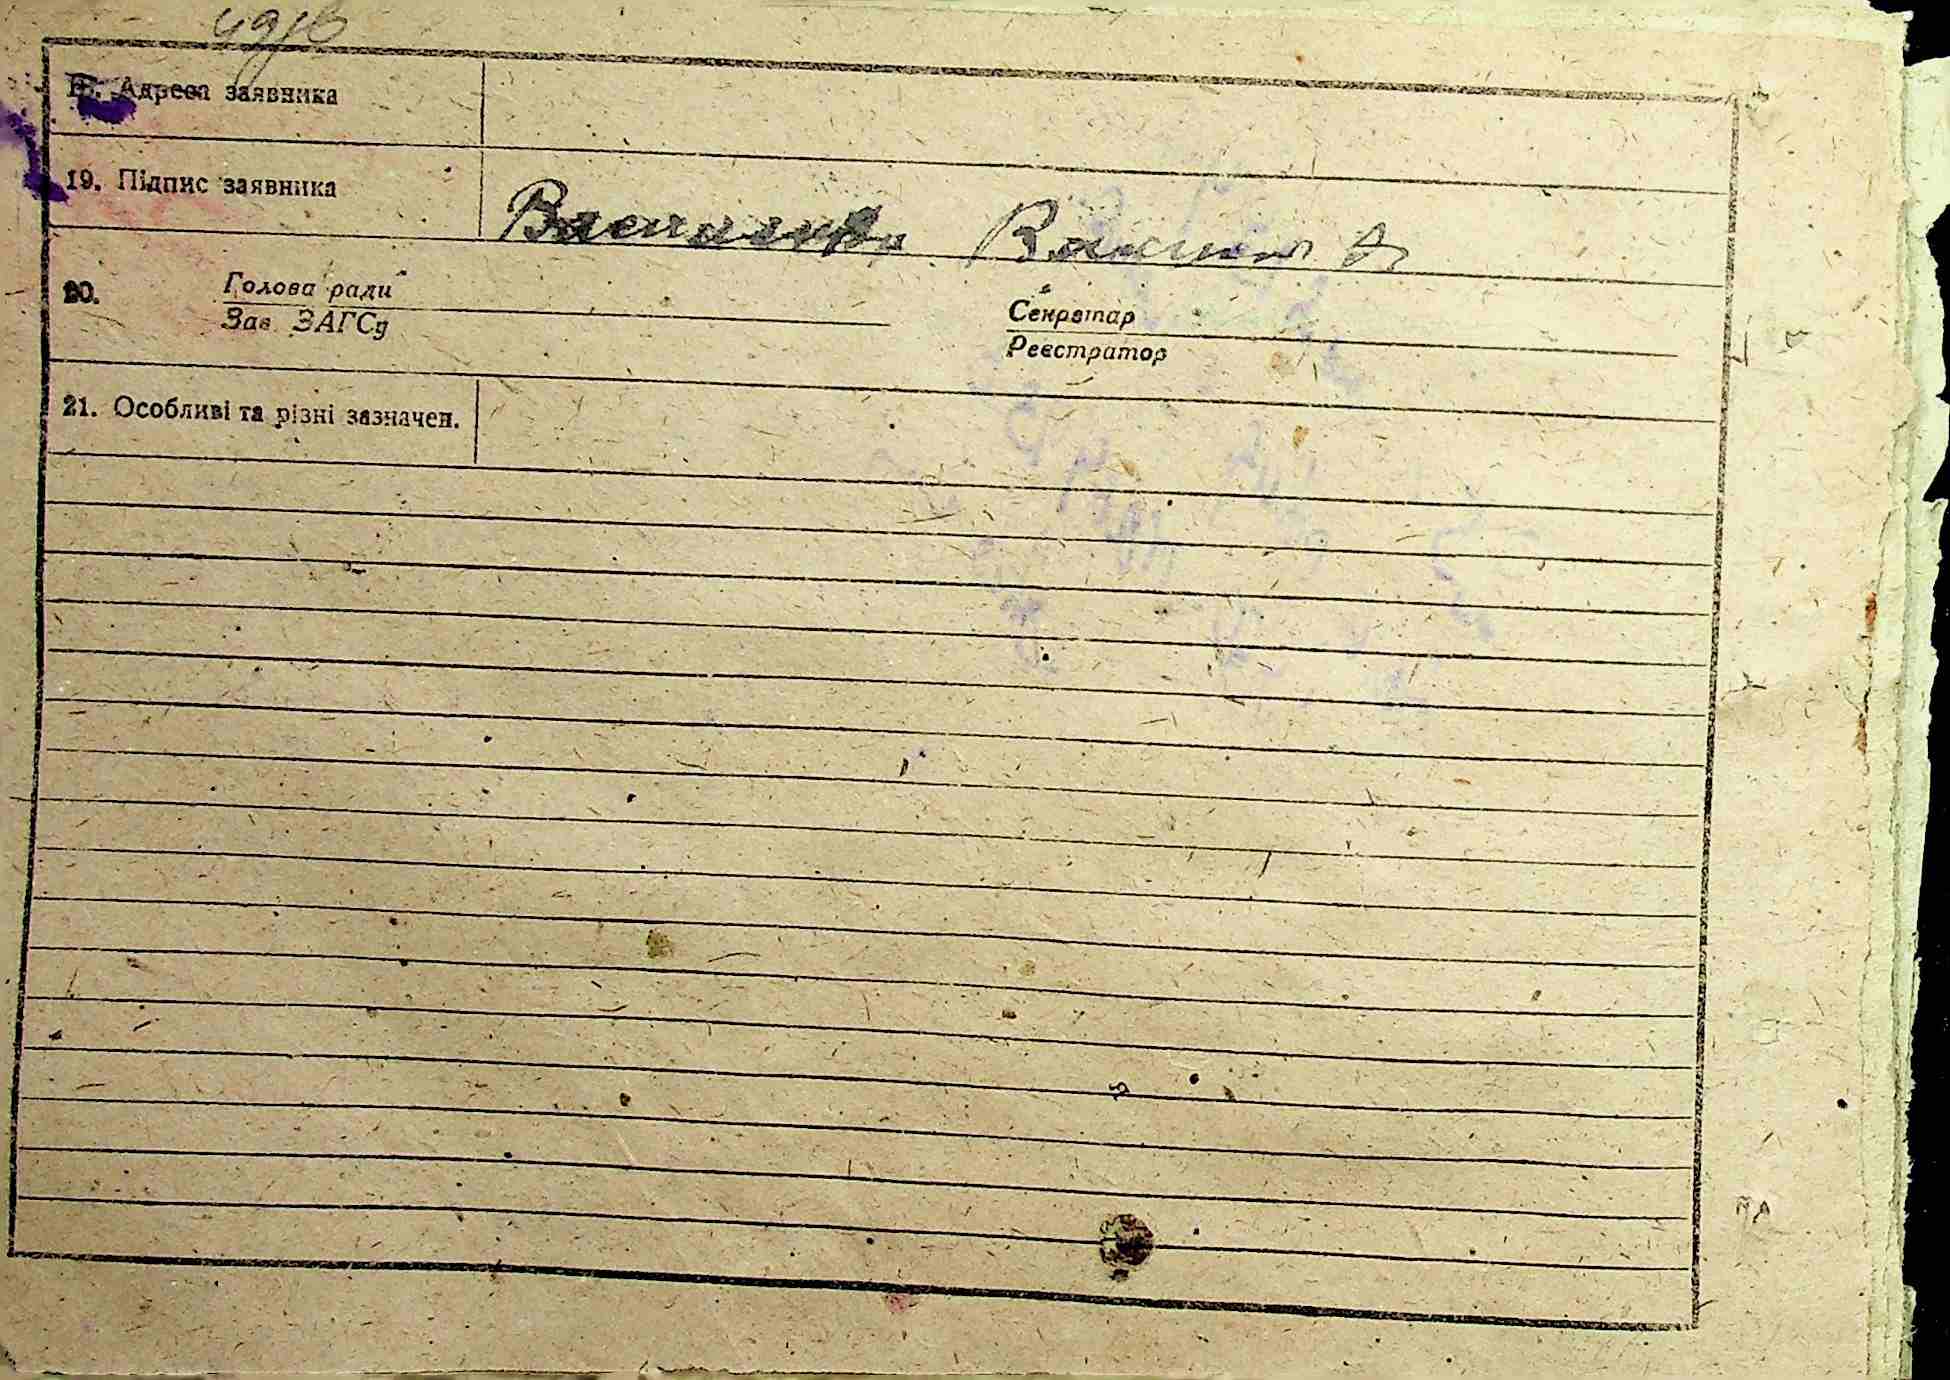 Адреса заявника
19. Підпис заявника
Василенко
20. Голова ради
Зав. ЗАГСу
Секретар
Реєстратор
21. Особливі та різні зазначен.